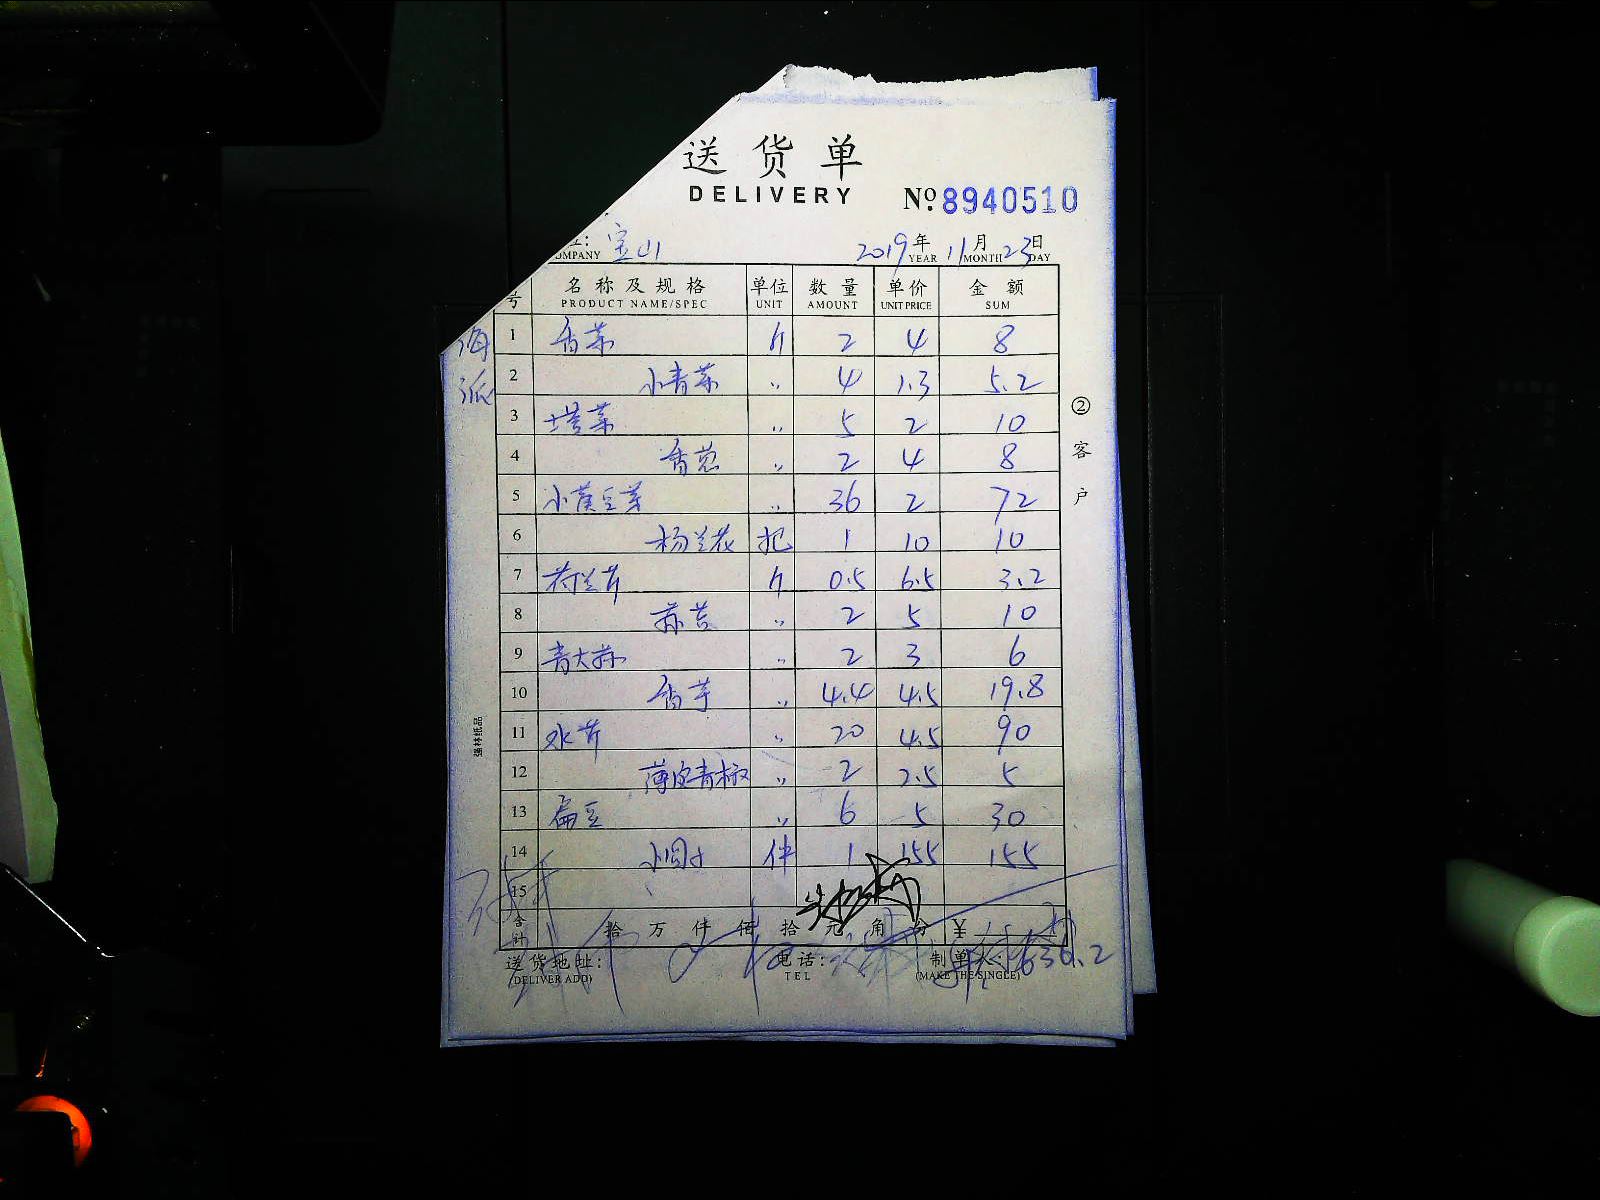 送货单
DELIVERY
№ 8940510
宝山
OMPANY
2019年 11月 23日
YEAR MONTH DAY
号 名称及规格 单位 数量 单价 金额
PRODUCT NAME/SPEC UNIT AMOUNT UNIT PRICE SUM
1 香菜 斤 2 4 8
2 小青菜 〃 4 1.3 5.2
3 塔菜 〃 5 2 10
4 香葱 〃 2 4 8
5 小黄豆芽 〃 36 2 72
6 杨兰花 把 1 10 10
7 荷兰芹 斤 0.5 6.5 3.2
8 〃 2 5 10
9 青大蒜 〃 2 3 6
10 香芋 〃 4.4 4.5 19.8
11 水芹 〃 20 4.5 90
12 薄皮青椒 〃 2 2.5 5
13 扁豆 〃 6 5 30
14 件 1 155 155
15
合计 拾 万 仟 佰 拾 元 角 分 ¥
636.2
送货地址: 电话: 制单人:
(DELIVER ADD) TEL (MAKE THE SINGLE)
②客户
强林纸品